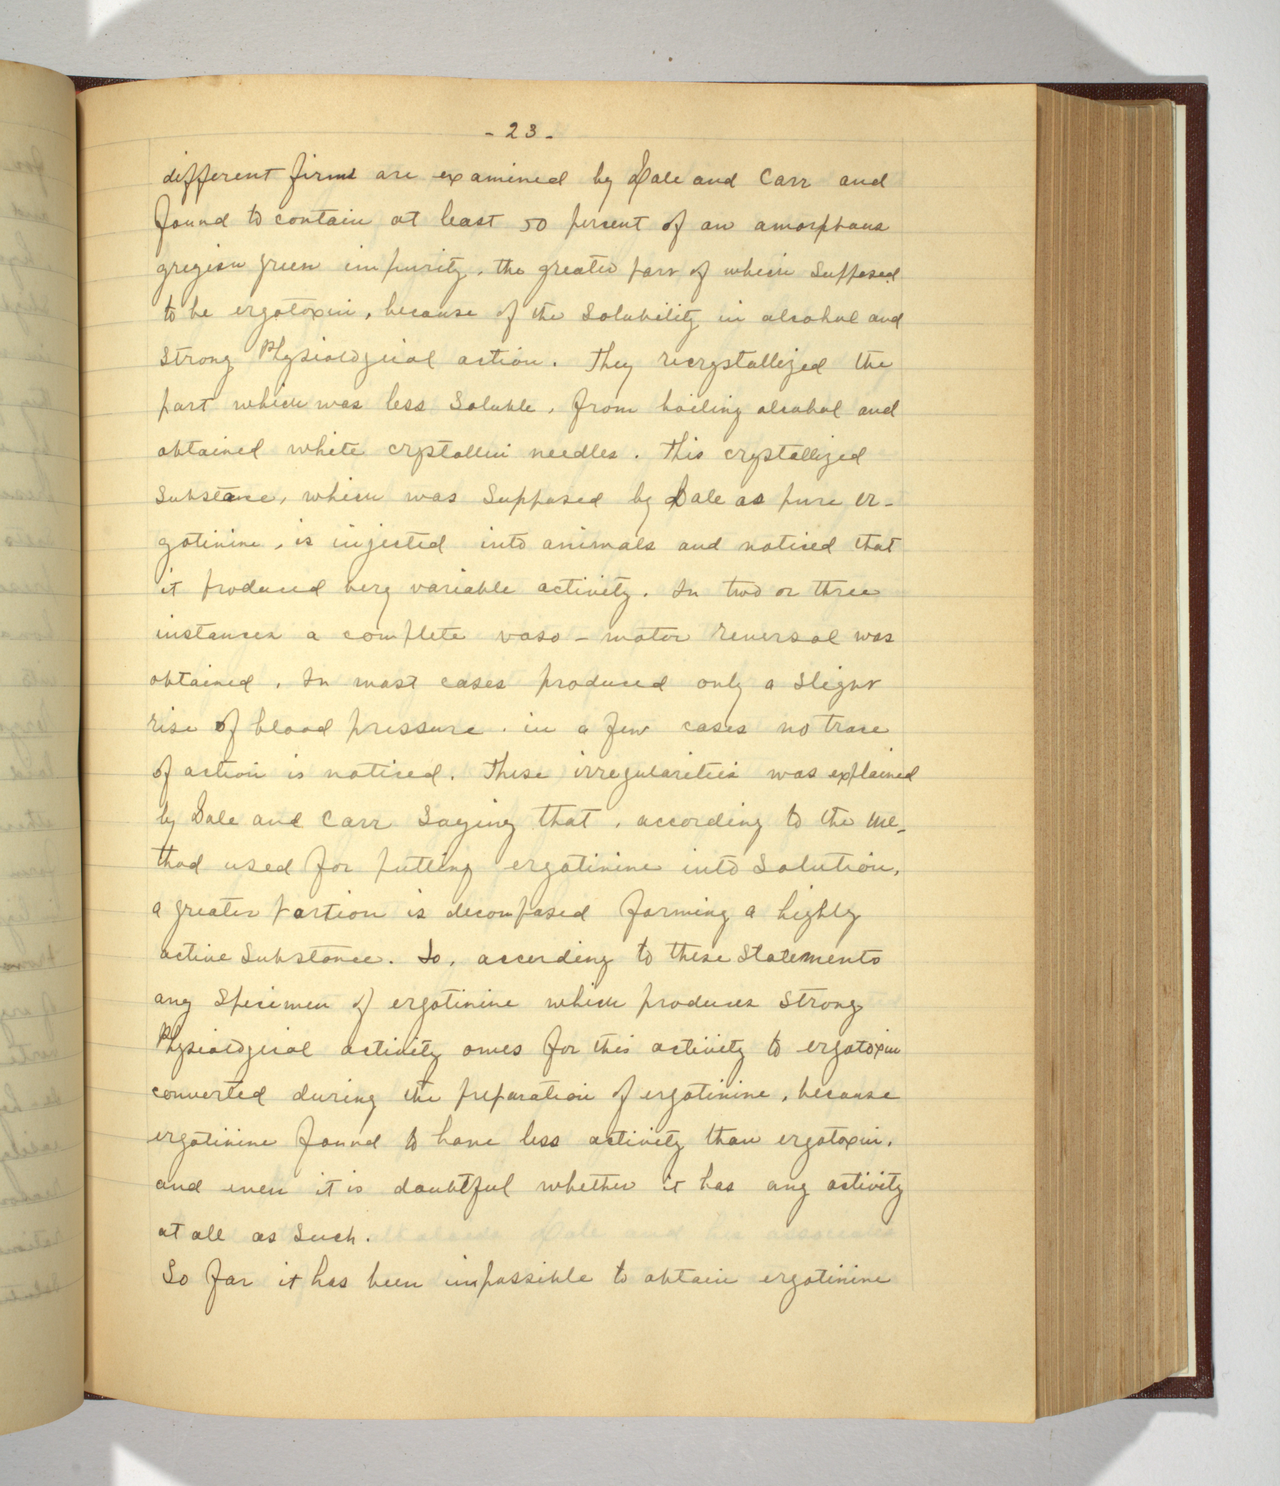 - 23 -
different firms are examined by Dale and Carr and
found to contain at least 50 percent of an amorphous
greyish green impurity, the greater part of which supposed
to be ergotoxin, because of the solubility in alcohol and
strong Physiological action. They recrystallized the
part which was less soluble, from boiling alcohol and
obtained white crystallin needles. This crystallized
substance, which was supposed by Dale as pure er-
gotinine, is injected into animals and noticed that
it produced very variable activity. In two or three
instances a complete vaso-motor reversal was
obtained. In most cases produced only a slight
rise of blood pressure, in a few cases no trace
of action is noticed. These irregularities was explained
by Dale and Carr saying that, according to the me-
thod used for putting ergotinine into solution,
a greater portion is decomposed forming a highly
active substance. So, according to these statements
any specimen of ergotinine which produces strong
Physiological activity owes for this activity to ergotoxin
converted during the preparation of ergotinine, because
ergotinine found to have less activity than ergotoxin,
and even it is doubtful whether it has any activity
at all as such.
So far it has been impossible to obtain ergotinine